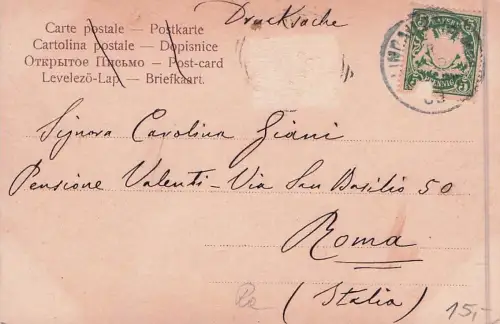 Drucksache
Carte postale — Postkarte
Cartolina postale — Dopisnice
Открытое Письмо — Post-card
Levelezö-Lap — Briefkaart.
5 5
PFENNIG
Signora Carolina Giani
Pensione Valenti - Via San Basilio 50
Roma
(Italia)
15,-